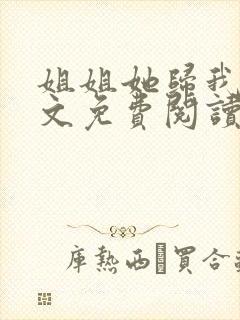 姐姐她歸我
文免費閱讀
庫熱西·買合